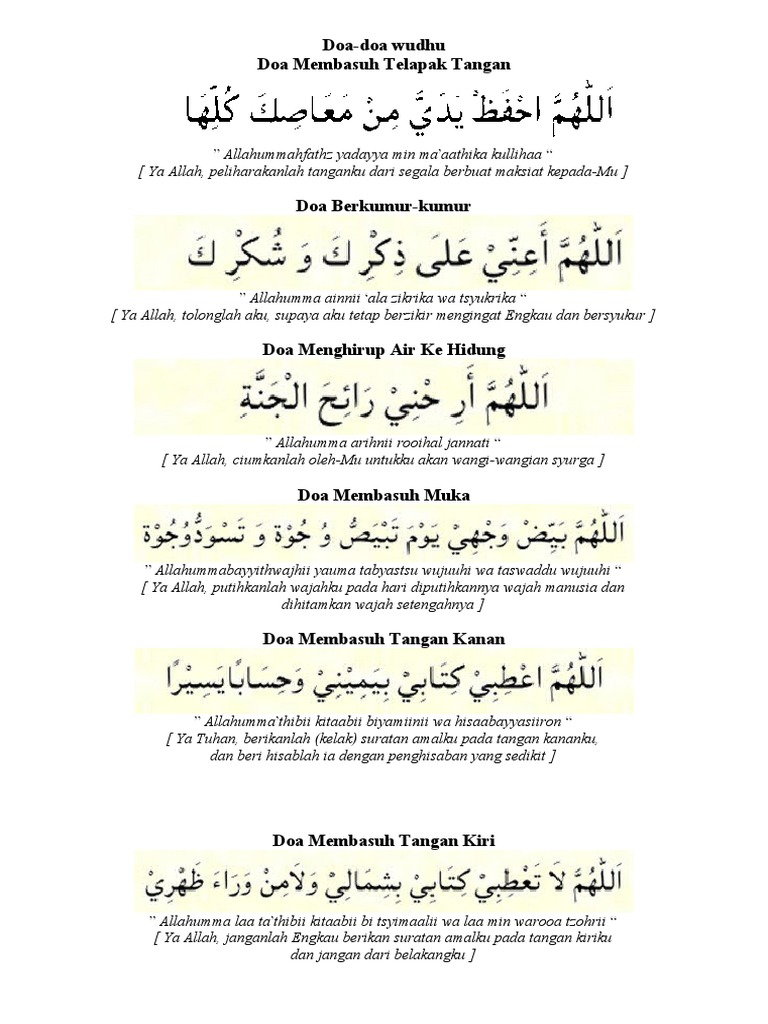 Doa-doa wudhu
Doa Membasuh Telapak Tangan
اَللّٰهُمَّ احْفَظْ يَدَيَّ مِنْ مَعَاصِكَ كُلِّهَا
” Allahummahfathz yadayya min ma`aathika kullihaa “
[ Ya Allah, peliharakanlah tanganku dari segala berbuat maksiat kepada-Mu ]
Doa Berkumur-kumur
اَللّٰهُمَّ أَعِنِّيْ عَلَى ذِكْرِ كَ وَ شُكْرِ كَ
” Allahumma ainnii ‘ala zikrika wa tsyukrika “
[ Ya Allah, tolonglah aku, supaya aku tetap berzikir mengingat Engkau dan bersyukur ]
Doa Menghirup Air Ke Hidung
اَللّٰهُمَّ أَرِ حْنِيْ رَائِحَ الْجَنَّةِ
” Allahumma arihnii rooihal jannati “
[ Ya Allah, ciumkanlah oleh-Mu untukku akan wangi-wangian syurga ]
Doa Membasuh Muka
اَللّٰهُمَّ بَيِّضْ وَجْهِيْ يَوْمَ تَبْيَضُّ وُ جُوْة وَ تَسْوَدُّوُجُوْة
” Allahummabayyithwajhii yauma tabyastsu wujuuhi wa taswaddu wujuuhi “
[ Ya Allah, putihkanlah wajahku pada hari diputihkannya wajah manusia dan
dihitamkan wajah setengahnya ]
Doa Membasuh Tangan Kanan
اَللّٰهُمَّ اعْطِبِيْ كِتَابِيْ بِيَمِيْنِيْ وَحِسَابًايَسِيْرًا
” Allahumma`thibii kitaabii biyamiinii wa hisaabayyasiiron “
[ Ya Tuhan, berikanlah (kelak) suratan amalku pada tangan kananku,
dan beri hisablah ia dengan penghisaban yang sedikit ]
Doa Membasuh Tangan Kiri
اَللّٰهُمَّ لاَ تَعْطِبِيْ كِتَابِيْ بِشِمَالِيْ وَلاَمِنْ وَرَاءَ ظَهْرِيْ
” Allahumma laa ta`thibii kitaabii bi tsyimaalii wa laa min warooa tzohrii “
[ Ya Allah, janganlah Engkau berikan suratan amalku pada tangan kiriku
dan jangan dari belakangku ]